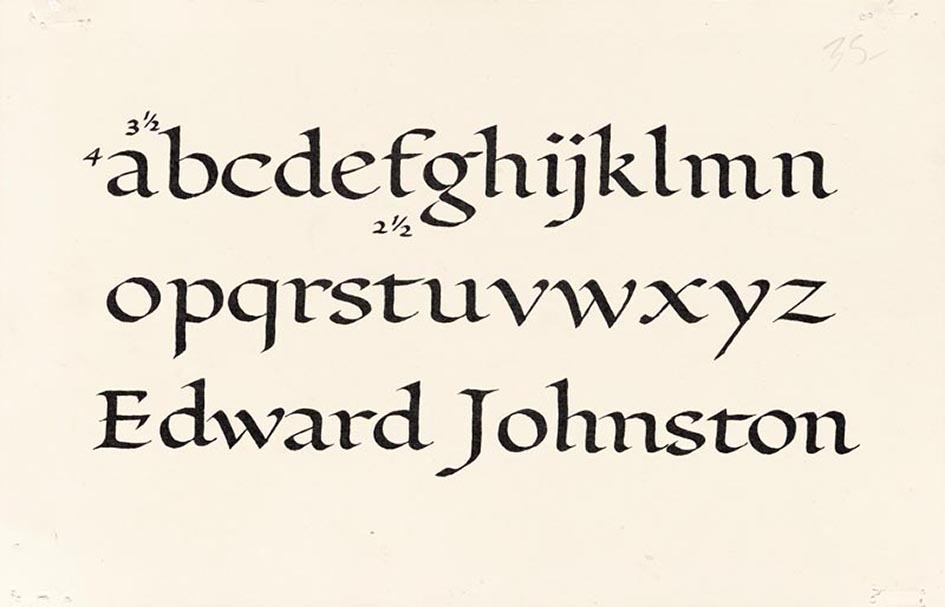 35-
3½
4 abcdefghijklmn
2½
opqrstuvwxyz
Edward Johnston